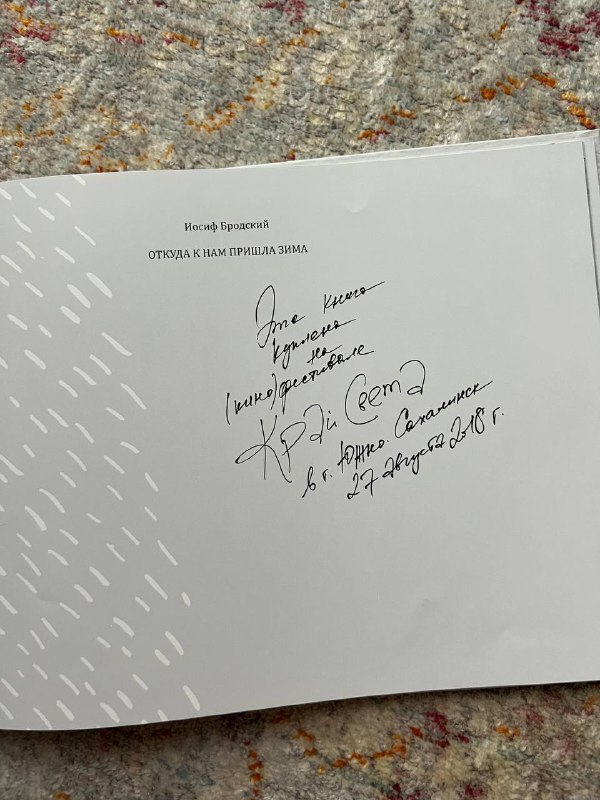 Иосиф Бродский
ОТКУДА К НАМ ПРИШЛА ЗИМА
Эта книга
куплена
на
(кино)фестивале
Край Света
в г. Южно-Сахалинск
27 августа 2018 г.